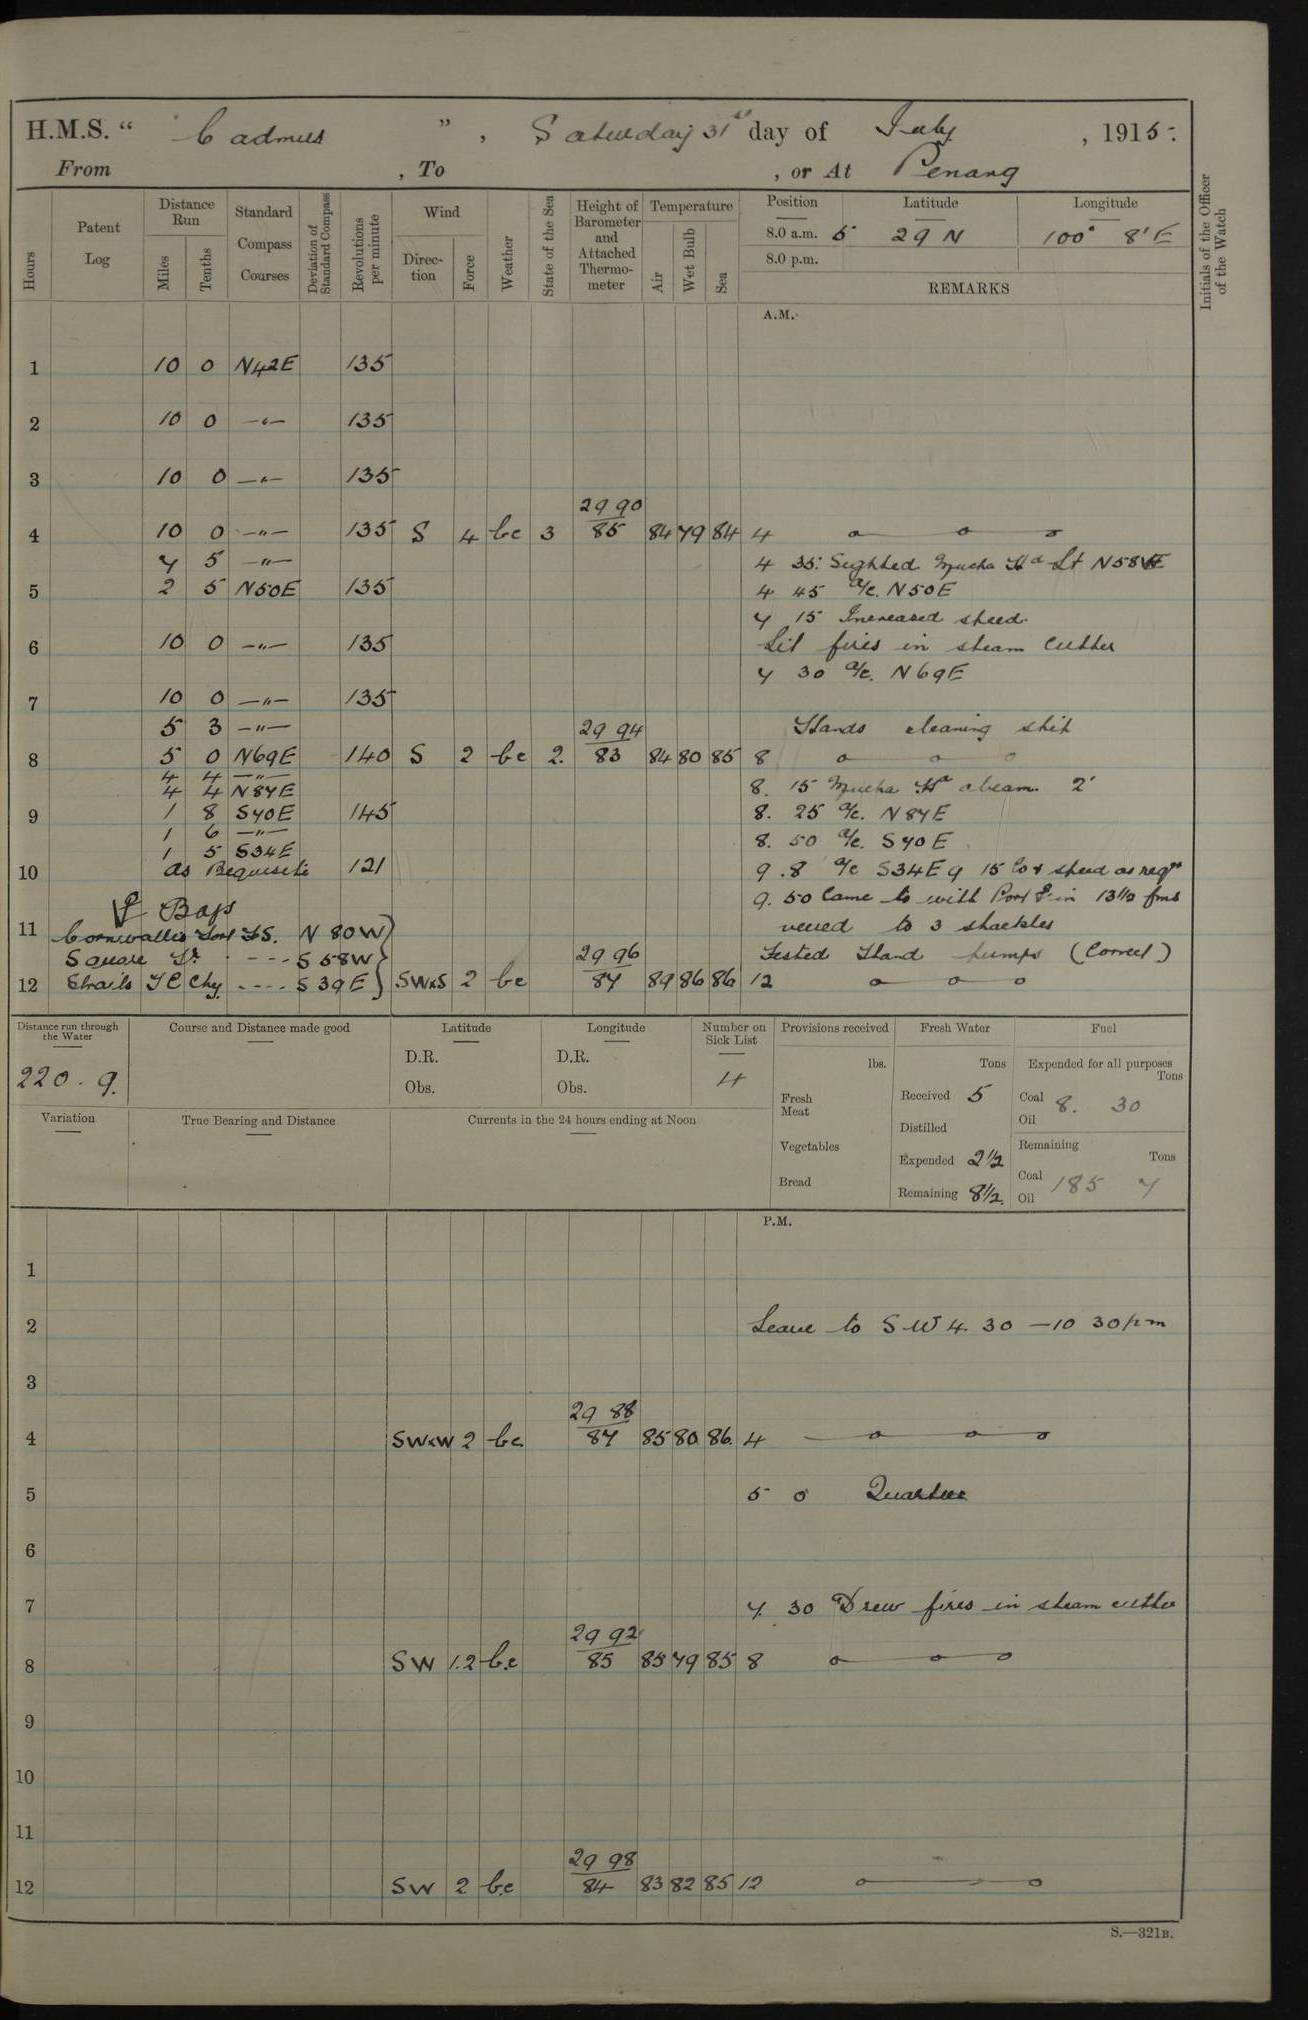 H.M.S. “ Cadmus ”, Saturday 31st day of July, 1915.
From , To , or At Penang
Hours
Patent Log
Distance Run
Miles
Tenths
Standard Compass Courses
Deviation of Standard Compass
Revolutions per minute
Wind
Direction
Force
Weather
State of the Sea
Height of Barometer and Attached Thermometer
Temperature
Air
Wet Bulb
Sea
Position Latitude Longitude
8.0 a.m. 5° 29 N 100° 8' E
8.0 p.m.
REMARKS
Initials of the Officer of the Watch
A.M.
1 10 0 N42E 135
2 10 0 —"— 135
3 10 0 —"— 135
29 90
4 10 0 —"— 135 S 4 bc 3 85 84 79 84 4
7 5 —"— 4 35: Sighted Mucka Hd Lt
5 2 5 N50E 135 4 45 a/c. N50E
7 15 Increased speed.
6 10 0 —"— 135 Lit fires in steam cutter
7 30 a/c. N69E
7 10 0 —"— 135
5 3 —"— 29 94 Hands cleaning ship
8 5 0 N69E 140 S 2 bc 2. 83 84 80 85 8
4 4 —"—
4 4 N87E 8. 15 Mucka Hd abeam. 2'
9 1 8 S70E 145 8. 25 a/c. N87E
1 6 —"— 8. 50 a/c. S70E
1 5 S34E
10 as Requisite 121 9. 8 a/c S34E 9 15 Co & speed as reqte
⚓ Bags 9. 50 Came to with Port ⚓ in 13 1/2 fms
11 Cornwallis Fort FS. N 80W veered to 3 shackles
Square Lt. - - - S 58W 29 96 Tested Hand pumps (Correct)
12 Straits TC Chy. - - - - S 39E SWxS 2 bc 87 89 86 86 12
Distance run through the Water
220 . 9.
Course and Distance made good
Latitude
D.R.
Obs.
Longitude
D.R.
Obs.
Number on Sick List
4
Provisions received
lbs.
Fresh Meat
Vegetables
Bread
Fresh Water
Tons
Received 5
Distilled
Expended 2 1/2
Remaining 8 1/2.
Fuel
Expended for all purposes
Tons
Coal 8. 30
Oil
Remaining
Tons
Coal 185 7
Oil
Variation
True Bearing and Distance
Currents in the 24 hours ending at Noon
P.M.
1
2 Leave to S-W 4. 30 — 10 30 pm
3
29 88
4 SWxW 2 bc. 87 85 80 86. 4
5 5 0 Quarters
6
7 7. 30 Drew fires in steam cutter
29 92
8 SW 1.2 b.c 85 85 79 85 8
9
10
11
29 98
12 SW 2 bc 84 83 82 85 12
S.—321B.